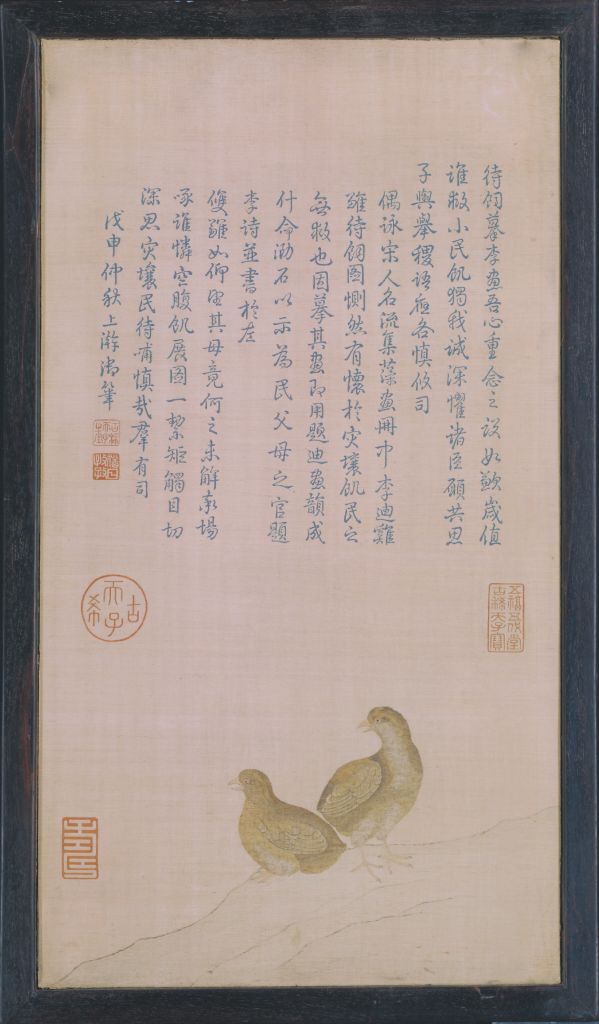 待飼摹李畫吾心重念之設如歉歲值
誰救小民飢獨我誠深懼諸臣願共思
子輿舉稷語應各慎攸司
偶詠宋人名流集藻畫冊中李迪雞
雛待飼圖惻然有懷於灾壤飢民之
無救也因摹其畫即用題迪畫韻成
什命泐石以示為民父母之官題
李詩並書於左
雙雛如仰望其母竟何之未解 場
啄誰憐空腹飢展圖一絜矩觸目切
深思灾壤民待哺慎哉羣有司
戊申仲秋上澣御筆
五福五代堂古稀天子寶
古希天子